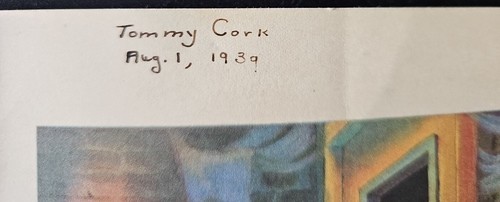 Tommy Cork
Aug. 1, 1939